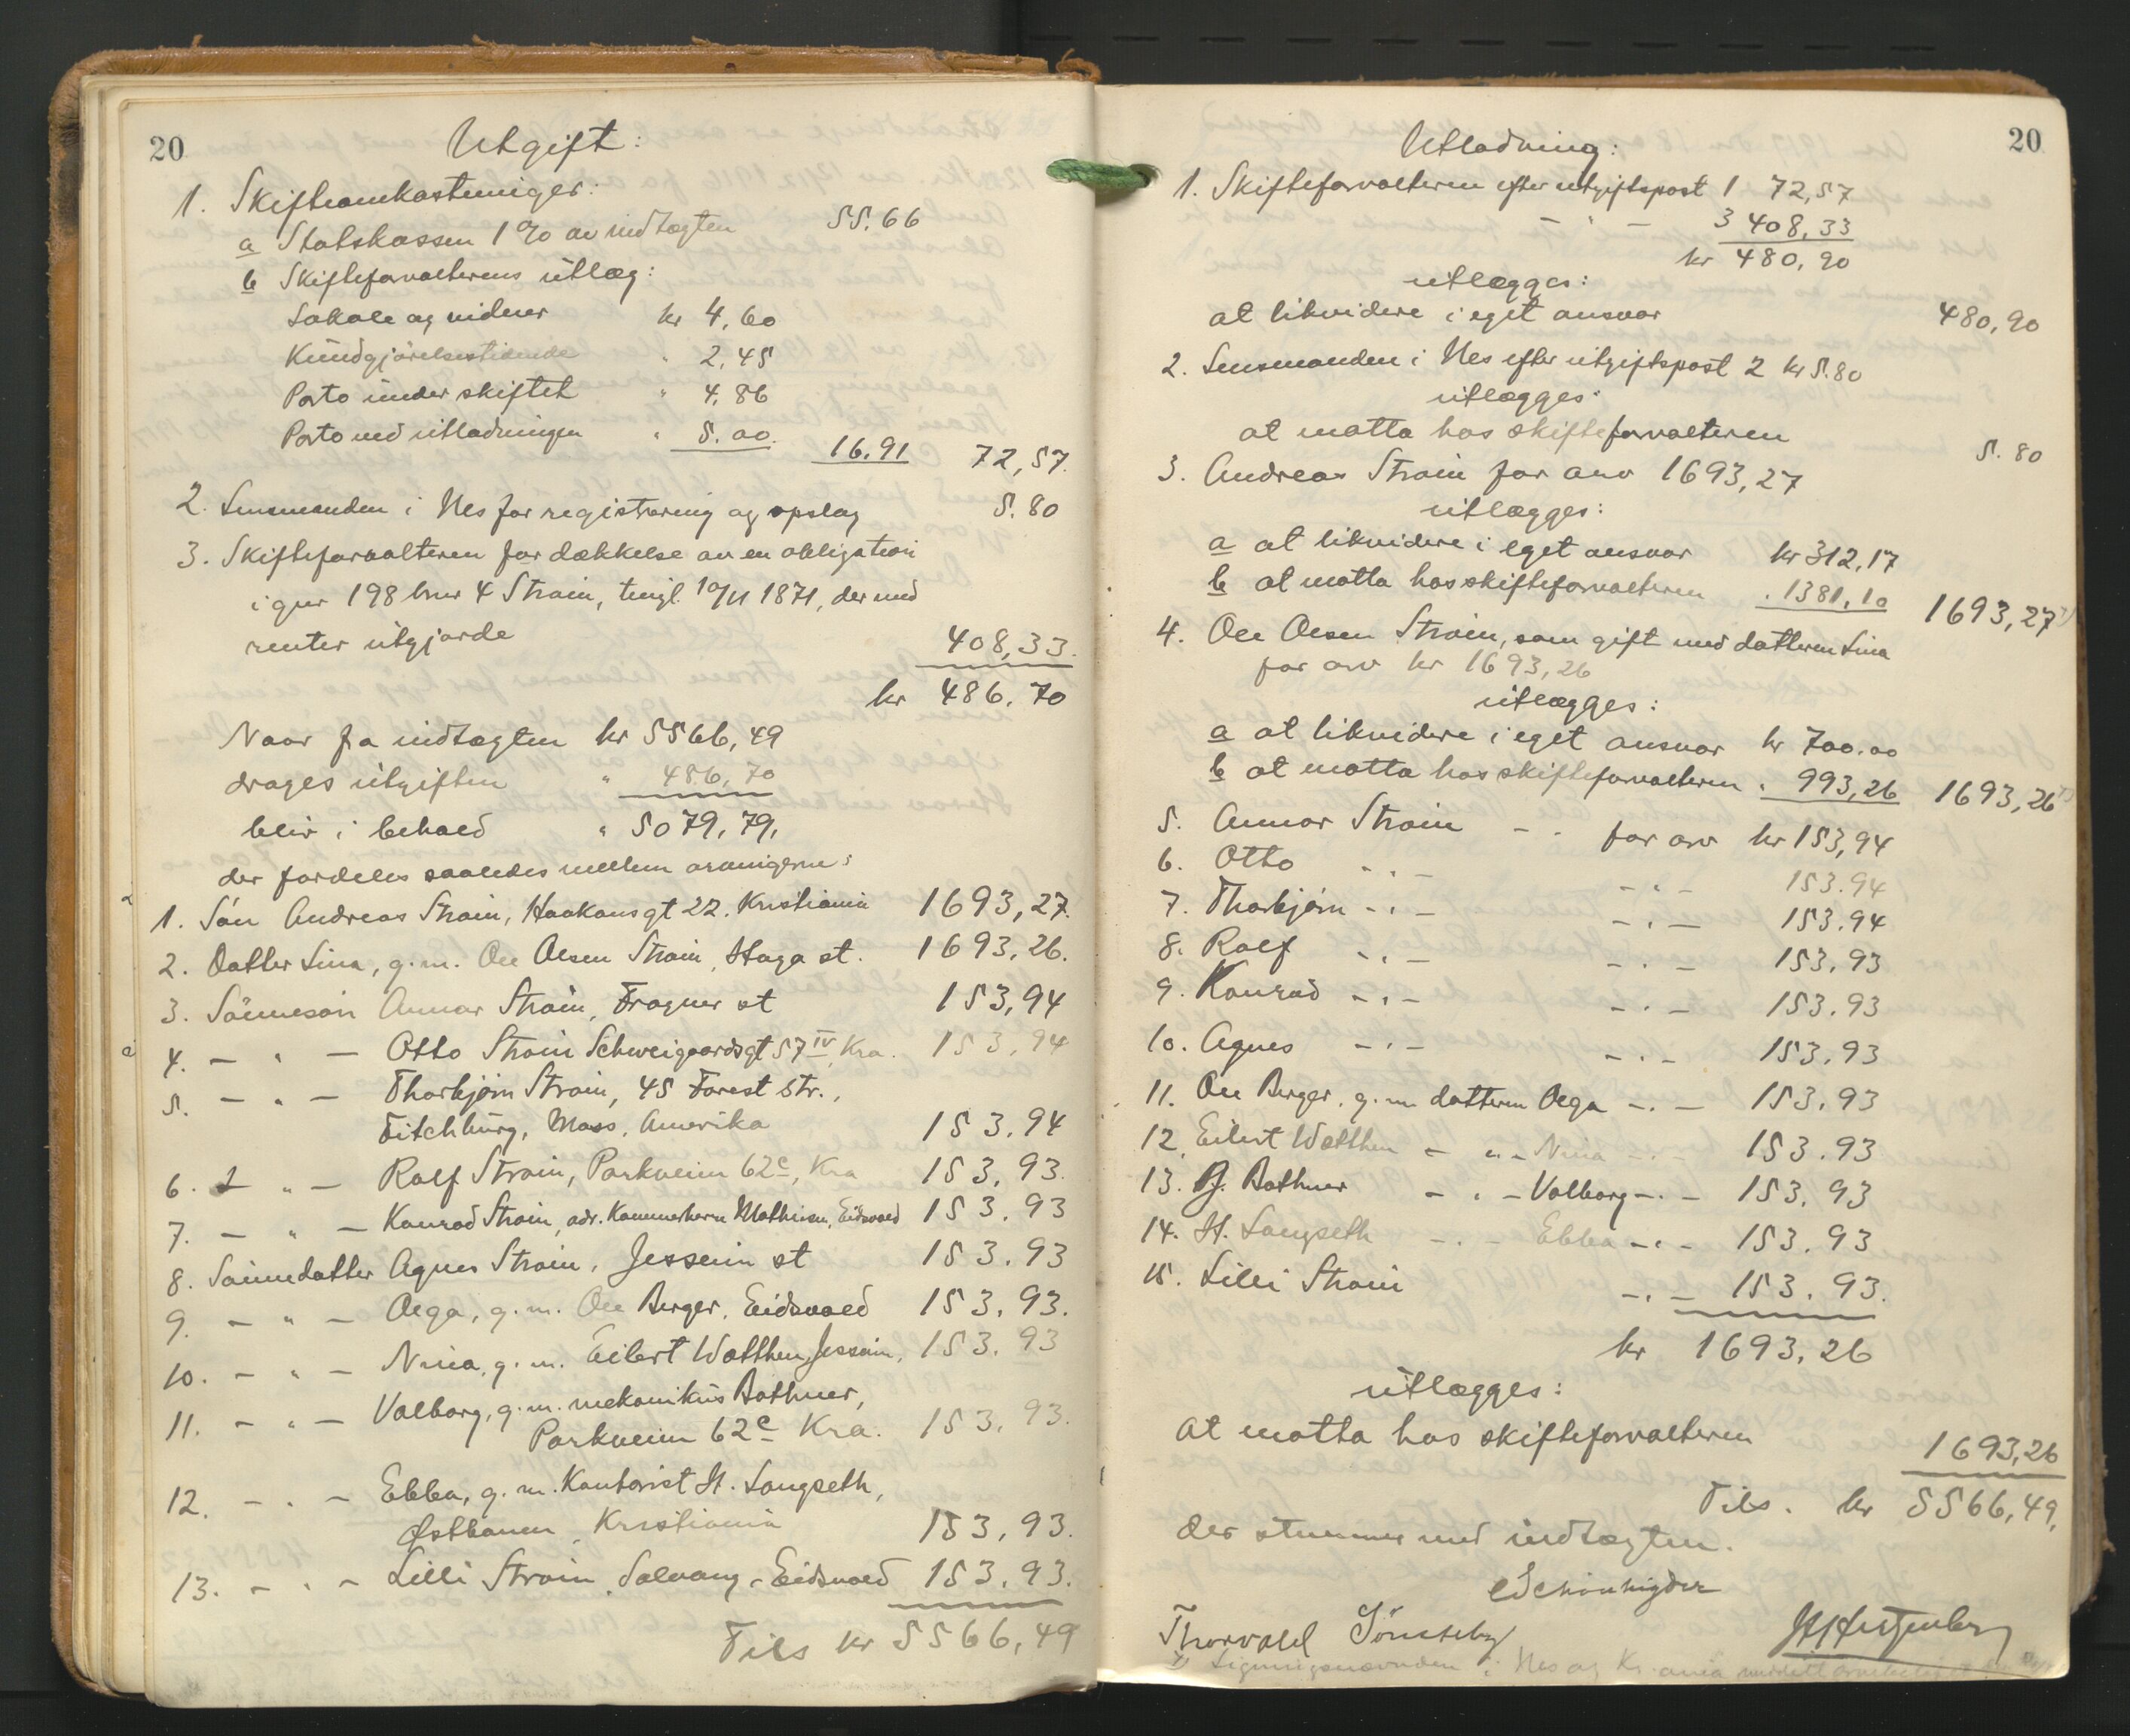 20
Utgift:
1. Skifteomkostninger:
a Statskassen 1 % av indtægten 55.66
b Skifteforvalterens utlæg:
Lokale og vidner kr 4,60
Kundgjörelsestidende " 2,45
Porto under skiftet " 4,86
Porto ved utlodningen " 5.00. 16.91 72,57.
2. Lensmanden i Nes for registrering og opslag 5.80
3. Skifteforvalteren for dækkelse av en obligation
i gnr 198 bnr 4 Strøm, tingl. 10/11 1871, der med
renter utgjorde 408,33.
kr 486.70
Naar fra indtægten kr 5566,49
drages utgiften " 486,70
blir i behold " 5079,79,
der fordeles saaledes mellem arvingerne:
1. Sön Andreas Strøm, Haakonsgt 22. Kristiania 1693,27.
2. Datter Lina, g.m. Ole Olsen Strøm, Haga st. 1693,26.
3. Sönnesön Annar Strøm, Frogner st 153,94
4. — " — Otto Strøm Schweigaardsgt 57 IV Kra. 153,94
5. — " — Thorbjørn Strøm, 45 Forest str.,
Fitchburg, Mass. Amerika 153.94
6. — " — Rolf Strøm, Parkveien 62c, Kra 153,93.
7. — " — Konrad Strøm, adr. Kammerherre Mathiesen, Eidsvold 153.93
8. Sönnedatter Agnes Strøm, Jessheim st 153.93
9. — " — Olga, g.m. Ole Berger, Eidsvold 153,93.
10. — " — Nina, g.m. Eilert Wolthen, Jessheim, 153.93
11. — " — Valborg, g.m. mekanikus Bothner,
Parkveien 62c Kra. 153,93.
12. — " — Ebba, g.m. Kontorist H. Langseth,
Østbanen, Kristiania 153,93.
13. — " — Lilli Strøm, Solvang, Eidsvold 153.93.
Tils kr 5566,49
20
Utlodning:
1. Skifteforvalteren efter utgiftspost 1 72,57
— " — 3 408,33
kr 480,90
utlægges:
at likvidere i eget ansvar 480,90
2. Lensmanden i Nes efter utgiftspost 2 kr 5.80
utlægges:
at motta hos skifteforvalteren 5.80
3. Andreas Strøm for arv 1693,27
utlægges:
a at likvidere i eget ansvar kr 312,17
b at motta hos skifteforvalteren " 1381,10 1693,27
4. Ole Olsen Strøm, som gift med datteren Lina
for arv kr 1693,26
utlægges:
a at likvidere i eget ansvar kr 700.00
b at motta hos skifteforvalteren " 993,26 1693,26
5. Annar Strøm — " — for arv kr 153,94
6. Otto — " — — " — 153.94
7. Thorbjørn — " — — " — 153.94
8. Rolf — " — — " — 153.93
9. Konrad — " — — " — 153.93
10. Agnes — " — — " — 153.93
11. Ole Berger, g.m. datteren Olga — " — 153.93
12. Eilert Wolthen — " — Nina — " — 153.93
13. Bothner — " — Valborg — " — 153.93
14. H. Langseth — " — Ebba — " — 153.93
15. Lilli Strøm — " — 153.93.
kr 1693,26
utlægges:
at motta hos skifteforvalteren 1693,26
Tils. kr 5566,49,
der stemmer med indtægten.
Thorvald
i Nes og Kr.ania